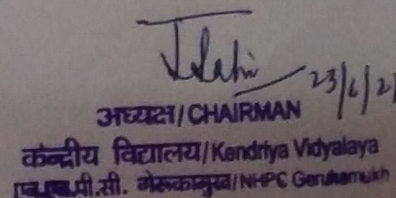 23/6/21
अध्यक्ष/CHAIRMAN
केन्द्रीय विद्यालय/Kendriya Vidyalaya
एन.एच.पी.सी. गेरूकामुख/NHPC Gerukamukh